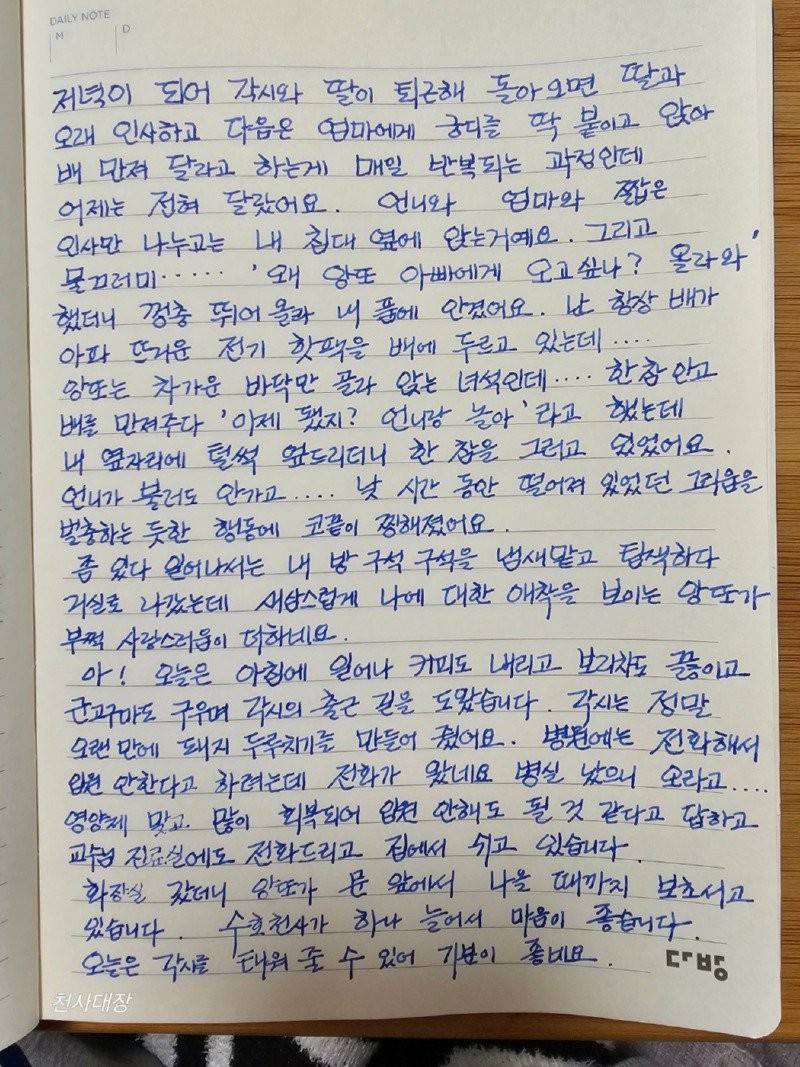 DAILY NOTE
M D
저녁이 되어 각시와 딸이 퇴근해 돌아오면 딸과
오래 인사하고 다음은 엄마에게 궁디를 딱 붙이고 앉아
배 만져 달라고 하는게 매일 반복되는 과정인데
어제는 전혀 달랐어요. 언니와 엄마와 짧은
인사만 나누고는 내 침대 옆에 앉는거예요. 그리고
물끄러미······ '왜 앙또 아빠에게 오고싶나? 올라와'
했더니 껑충 뛰어올라 내 품에 안겼어요. 난 항상 배가
아파 뜨거운 전기 핫팩을 배에 두르고 있는데····
앙또는 차가운 바닥만 골라 앉는 녀석인데···· 한참 안고
배를 만져주다 '이제 됐지? 언니랑 놀아'라고 했는데
내 옆자리에 털썩 엎드리더니 한 참을 그러고 있었어요.
언니가 불러도 안가고···· 낮 시간 동안 떨어져 있었던 그리움을
벌충하는 듯한 행동에 코끝이 찡해졌어요.
좀 있다 일어나서는 내 방 구석 구석을 냄새맡고 탐색하다
거실로 나갔는데 새삼스럽게 나에 대한 애착을 보이는 앙또가
부쩍 사랑스러움이 더하네요.
아! 오늘은 아침에 일어나 커피도 내리고 보리차도 끓이고
군고구마도 구우며 각시의 출근 길을 도왔습니다. 각시는 정말
오랜만에 돼지 두루치기를 만들어 줬어요. 병원에는 전화해서
입원 안한다고 하려는데 전화가 왔네요 병실 났으니 오라고····
영양제 맞고 많이 회복되어 입원 안해도 될 것 같다고 답하고
교수님 진료실에도 전화드리고 집에서 쉬고 있습니다.
화장실 갔더니 앙또가 문 앞에서 나올 때까지 보초서고
있습니다. 수호천사가 하나 늘어서 마음이 좋습니다.
오늘은 각시를 태워 줄 수 있어 기분이 좋네요.
다방
천사대장